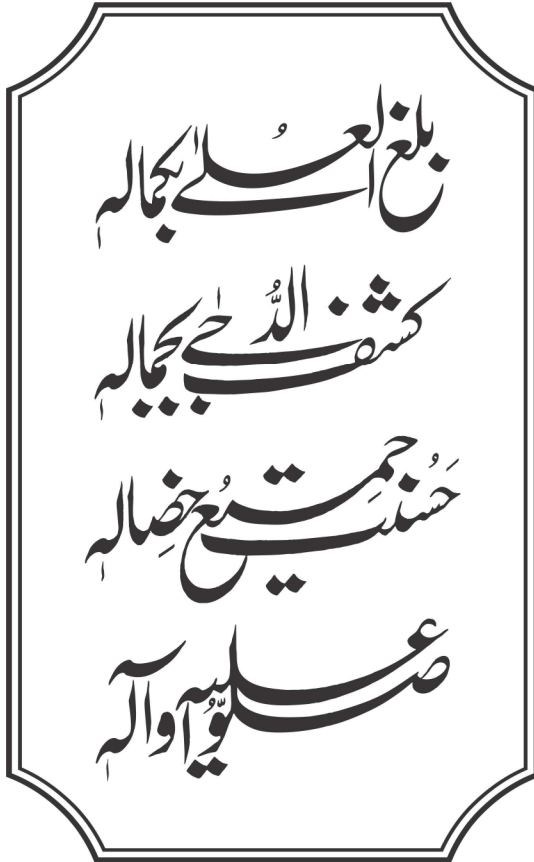 بلغ العُلےٰ بکمالہٖ
کشف الدُّجےٰ بجمالہٖ
حَسُنت جمیعُ خِصالہٖ
صلّوا علیہ وآلہٖ